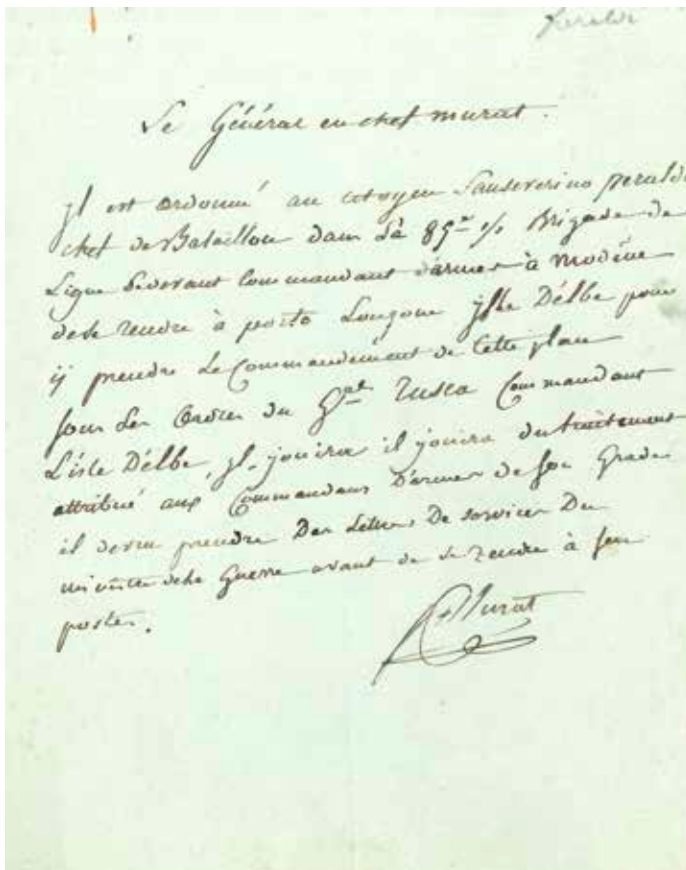 Peraldi
Le Général en chef murat.
Jl est ordonné au citoyen Sanseverino peraldi
chef de Bataillon dans La 85me 1/2 Brigade de
Ligne cidevant Commandant d'armes à Modène
de se rendre à porto Longone jsle D'élbe pour
ÿ prendre Le Commandement de Cette place
sous Les Ordres du Gal Rusca Commandant
L'isle D'élbe, jl jouira il jouira du traitement
attribué aux Commandans D'armes de son Grade
il devra prendre Des Lettres De services Du
ministre de la Guerre avant de se rendre à son
poste.
Murat